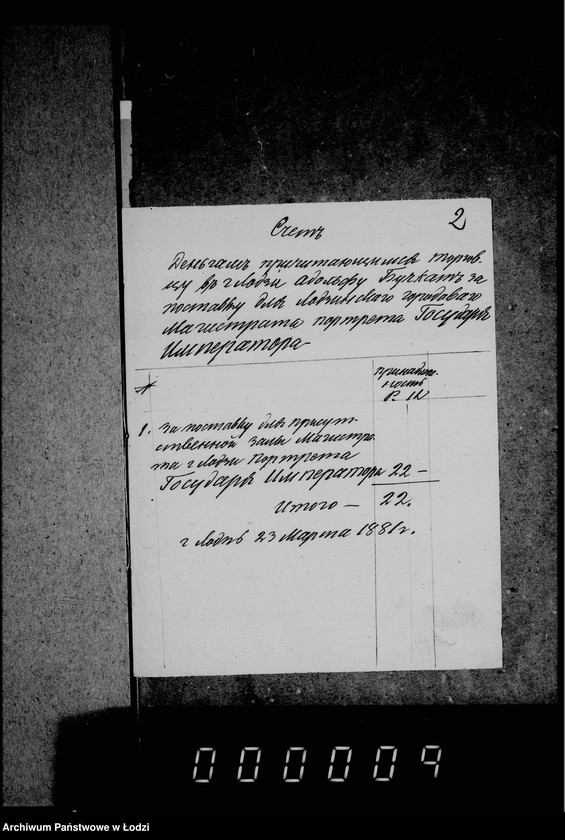 2
Счетъ
Деньгамъ причитающимся торгов.
цу въ г Лодзи Адольфу Бучкатъ за
поставку для Лодзинскаго городоваго
Магистрата портрета Государя
Императора
№
принадлеж-
ность
Р. К
1. За поставку для присут-
ственной залы Магистра
та г Лодзи Портрета
Государя Императора 22 —
Итого — 22.
г Лодзь 23 Марта 1881 г.
000009
Archiwum Państwowe w Łodzi